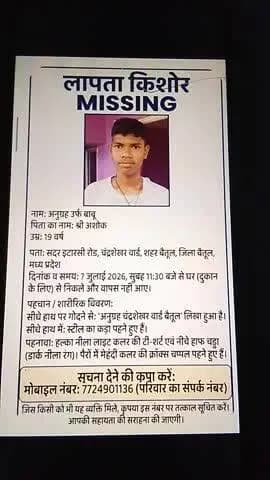 लापता किशोर
MISSING
नाम: अनुग्रह उर्फ बाबू
पिता का नाम: श्री अशोक
उम्र: 19 वर्ष
पता: सदर इटारसी रोड, चंद्रशेखर वार्ड, शहर बैतूल, जिला बैतूल,
मध्य प्रदेश
दिनांक व समय: 7 जुलाई 2026, सुबह 11:30 बजे से घर (दुकान
के लिए) से निकले और वापस नहीं आए।
पहचान / शारीरिक विवरण:
सीधे हाथ पर गोदने से: 'अनुग्रह चंद्रशेखर वार्ड बैतूल' लिखा हुआ है।
सीधे हाथ में: स्टील का कड़ा पहने हुए हैं।
पहनावा: हल्का नीला लाइट कलर की टी-शर्ट एवं नीचे हाफ चड्डा
(डार्क नीला रंग)। पैरों में मेहंदी कलर की क्रॉक्स चप्पल पहने हुए हैं।
सूचना देने की कृपा करें:
मोबाइल नंबर: 7724901136 (परिवार का संपर्क नंबर)
जिस किसी को भी यह व्यक्ति मिले, कृपया इस नंबर पर तत्काल सूचित करें।
आपकी सहायता की सराहना की जाएगी।